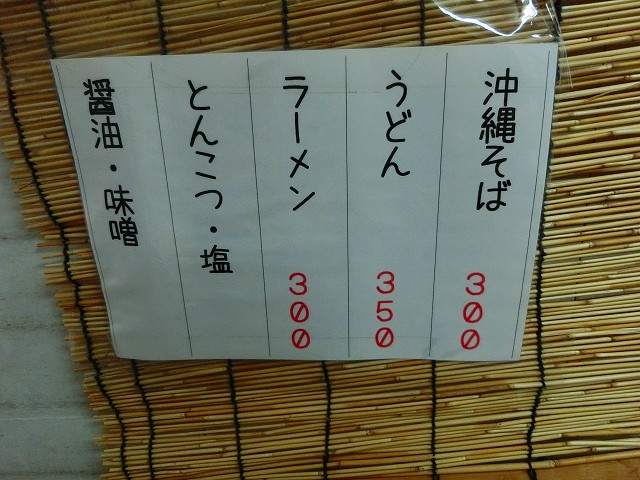 沖縄そば 300
うどん 350
ラーメン 300
とんこつ・塩
醤油・味噌